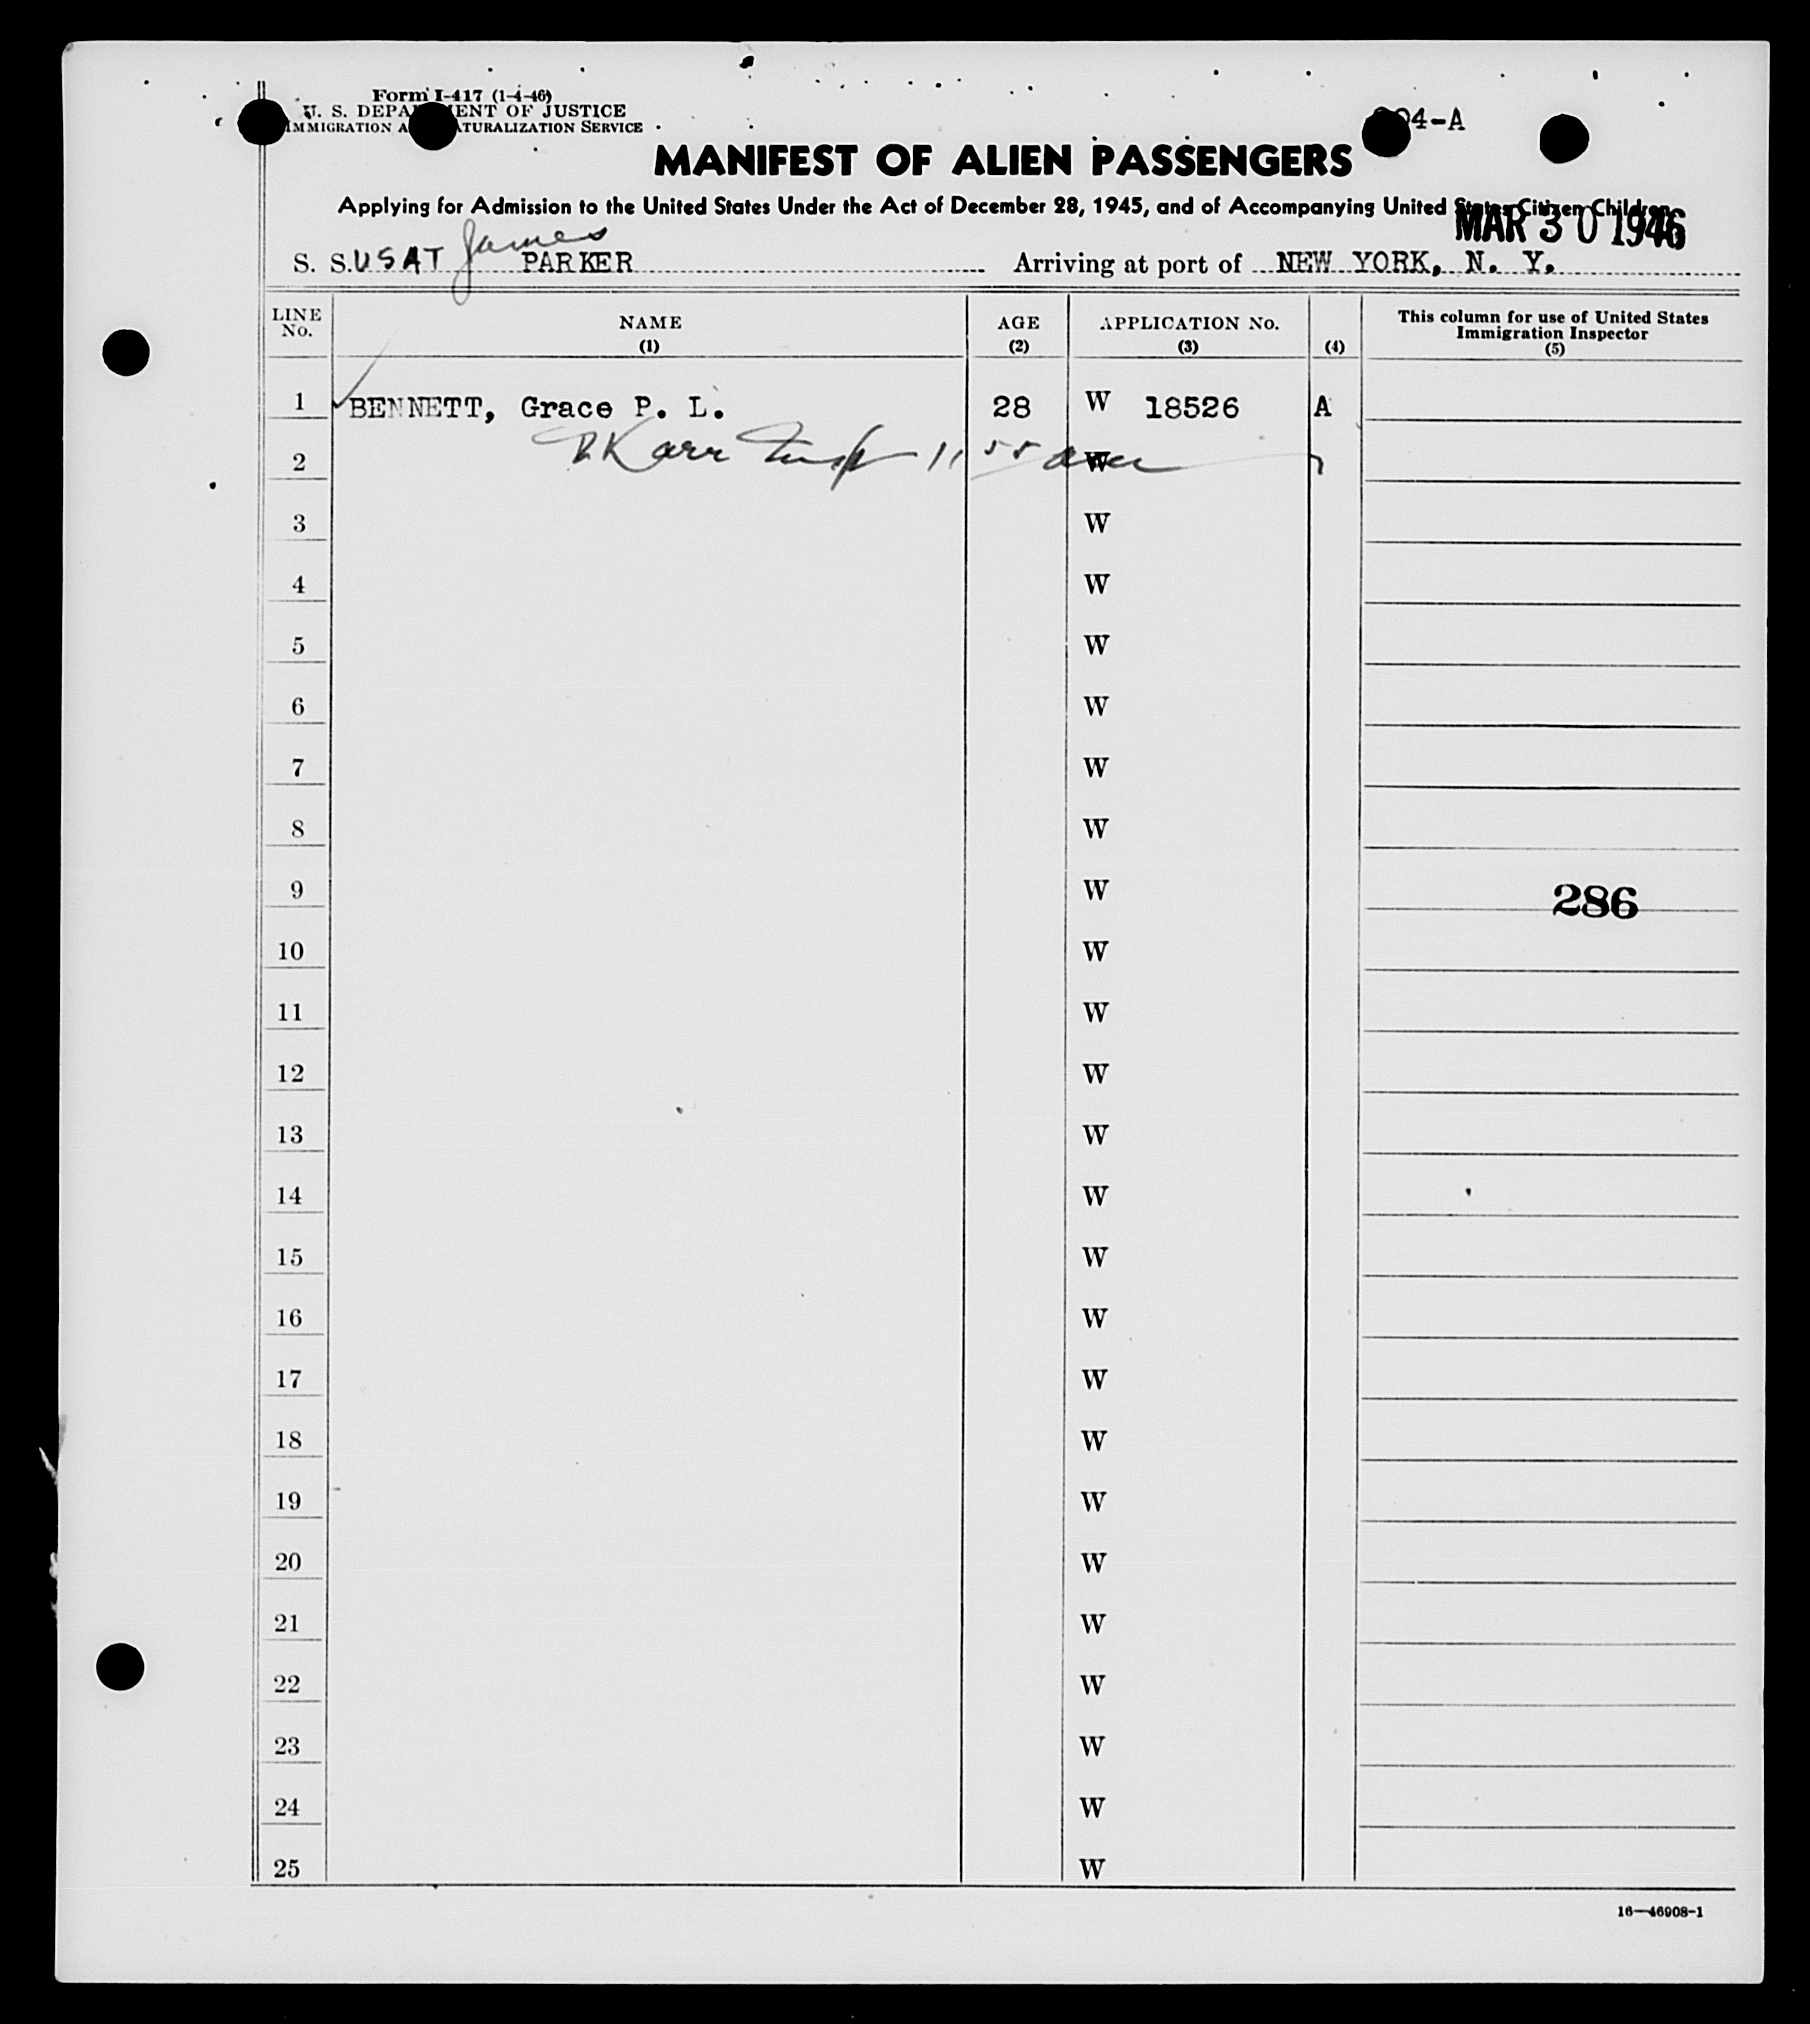 Form I-417 (1-4-46)
U. S. DEPA ENT OF JUSTICE
IMMIGRATION A TURALIZATION SERVICE
04-A
MANIFEST OF ALIEN PASSENGERS
Applying for Admission to the United States Under the Act of December 28, 1945, and of Accompanying United States Citizen Children
MAR 30 1946
S. S. USAT James PARKER Arriving at port of NEW YORK, N. Y.
LINE No. NAME (1) AGE (2) APPLICATION No. (3) (4) This column for use of United States Immigration Inspector (5)
1 BENNETT, Grace P. L. 28 W 18526 A
Karr Insp 11 55
2 W
3 W
4 W
5 W
6 W
7 W
8 W
9 W 286
10 W
11 W
12 W
13 W
14 W
15 W
16 W
17 W
18 W
19 W
20 W
21 W
22 W
23 W
24 W
25 W
16—46908-1